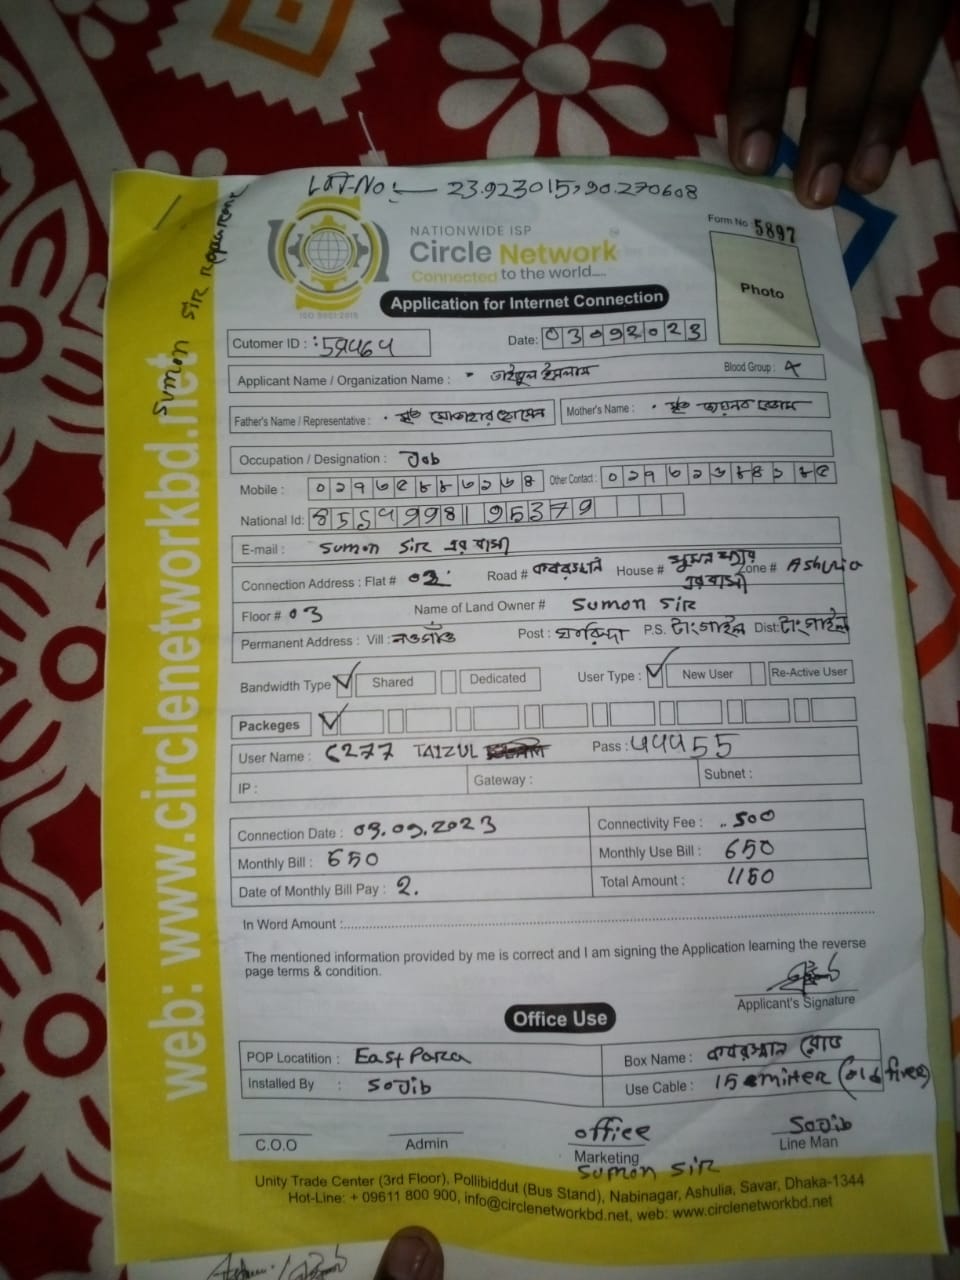 LAT-NO:— 23.923015,90.270608
Sumon Sir
NATIONWIDE ISP
Circle Network
Connected to the world....
ISO 9001:2015
Application for Internet Connection
Form No 5897
Photo
Date: 03092023
Cutomer ID :
Applicant Name / Organization Name : তাইজুল ইসলাম
Blood Group : A
Father's Name / Representative : মোতাহার হোসেন
Mother's Name :
Occupation / Designation : Job
Mobile :
Other Contact :
National Id:
E-mail : Sumon Sir এর বাসা
Connection Address : Flat # 03 Road # কবরস্থান House # সুমন স্যার এর বাসা Zone # Ashulia
Floor # 03 Name of Land Owner # Sumon Sir
Permanent Address : Vill : নওগাঁও Post : P.S. টাংগাইল Dist: টাংগাইল
Bandwidth Type Shared Dedicated User Type : New User Re-Active User
Packeges
User Name : C277 TAIZUL Pass : 44455
IP : Gateway : Subnet :
Connection Date : 03.09.2023 Connectivity Fee : 500
Monthly Bill : 650 Monthly Use Bill : 650
Date of Monthly Bill Pay : 2. Total Amount : 1150
In Word Amount :
The mentioned information provided by me is correct and I am signing the Application learning the reverse
page terms & condition.
Applicant's Signature
Office Use
POP Locatition : East Para Box Name : কবরস্থান রোড
Installed By : Sojib Use Cable : 15 miter (old fiver)
C.O.O Admin office Marketing Sojib Line Man
Sumon Sir
Unity Trade Center (3rd Floor), Pollibiddut (Bus Stand), Nabinagar, Ashulia, Savar, Dhaka-1344
Hot-Line: + 09611 800 900, info@circlenetworkbd.net, web: www.circlenetworkbd.net
web: www.circlenetworkbd.net